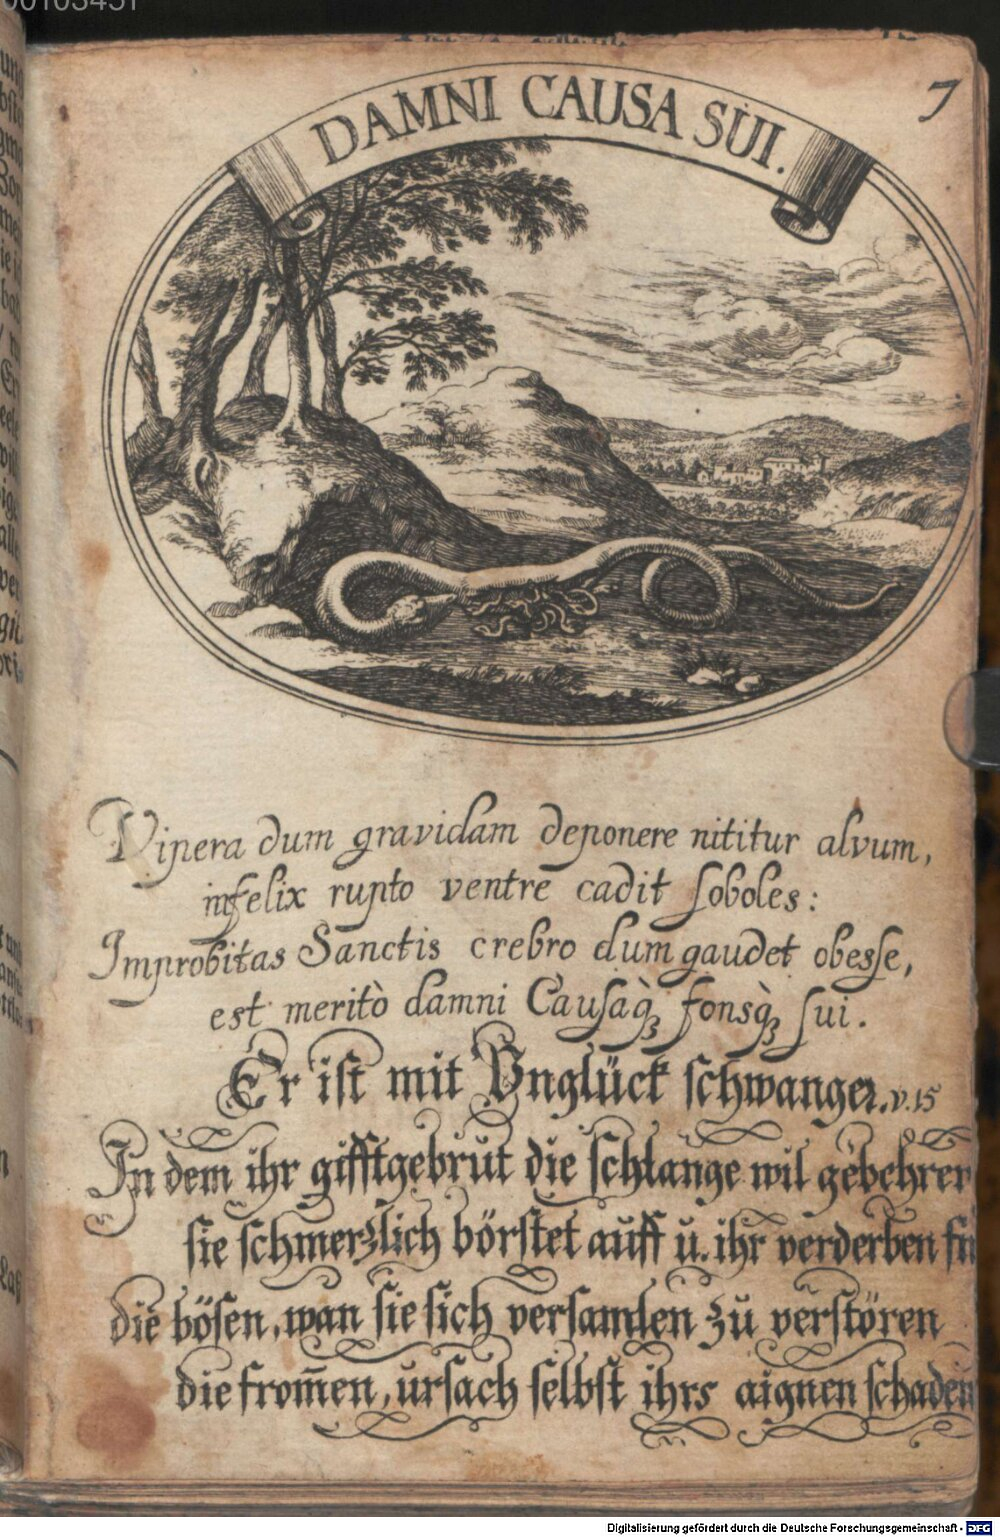 7
DAMNI CAUSA SUI.
Vipera dum gravidam deponere nititur alvum,
infelix rupto ventre cadit soboles:
Improbitas Sanctis crebro dum gaudet obesse,
est meritò damni Causaq̀ꝫ fonsq̀ꝫ sui.
Er ist mit Vnglück schwanger. v. 15
In dem ihr gifftgebrut die schlange wil gebehren
sie schmerzlich börstet auff u. ihr verderben
die bösen, wan sie sich versamlen zu verstören
die from̄en, ursach selbst ihrs aignen schaden
Digitalisierung gefördert durch die Deutsche Forschungsgemeinschaft - DFG